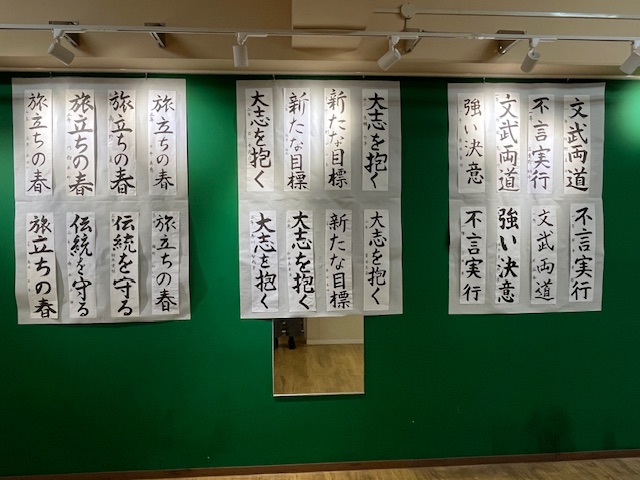 文武両道
不言実行
文武両道
強い決意
不言実行
文武両道
強い決意
不言実行
大志を抱く
新たな目標
新たな目標
大志を抱く
大志を抱く
新たな目標
大志を抱く
大志を抱く
旅立ちの春
旅立ちの春
旅立ちの春
旅立ちの春
旅立ちの春
伝統を守る
伝統を守る
旅立ちの春